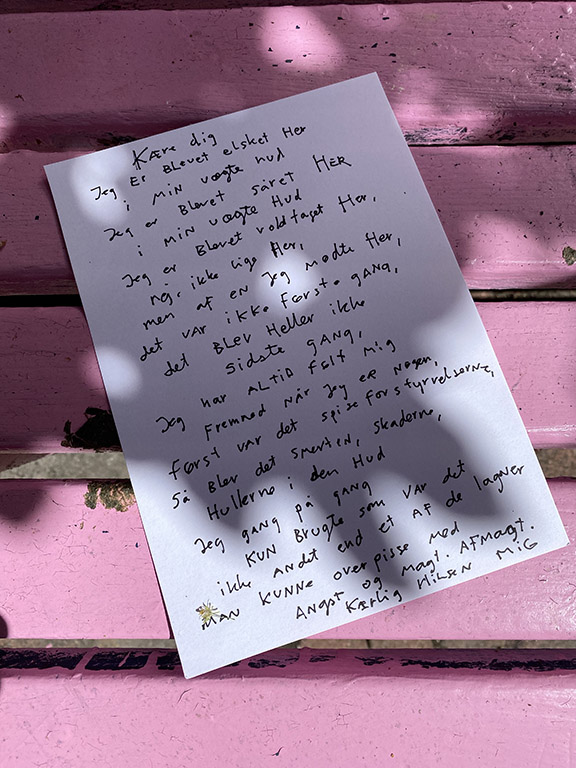 Kære dig
Jeg Er Blevet elsket Her
i MIN vægte hud
Jeg er Blevet såret HER
i MIN vægte Hud
Jeg er Blevet voldtaget Her,
nej, ikke lige Her,
men af en Jeg mødte Her,
det var ikke første gang,
det Blev Heller ikke
sidste gang,
Jeg har ALTID følt mig
Fremmed når Jeg er nøgen,
Først var det spiseforstyrrelserne,
Så Blev det smerten, skaderne,
Hullerne i den Hud
Jeg gang på gang
KUN Brugte som var det
ikke andet end et af de lagner
MAN kunne overpisse med
Angst og magt. Afmagt.
Kærlig Hilsen MiG